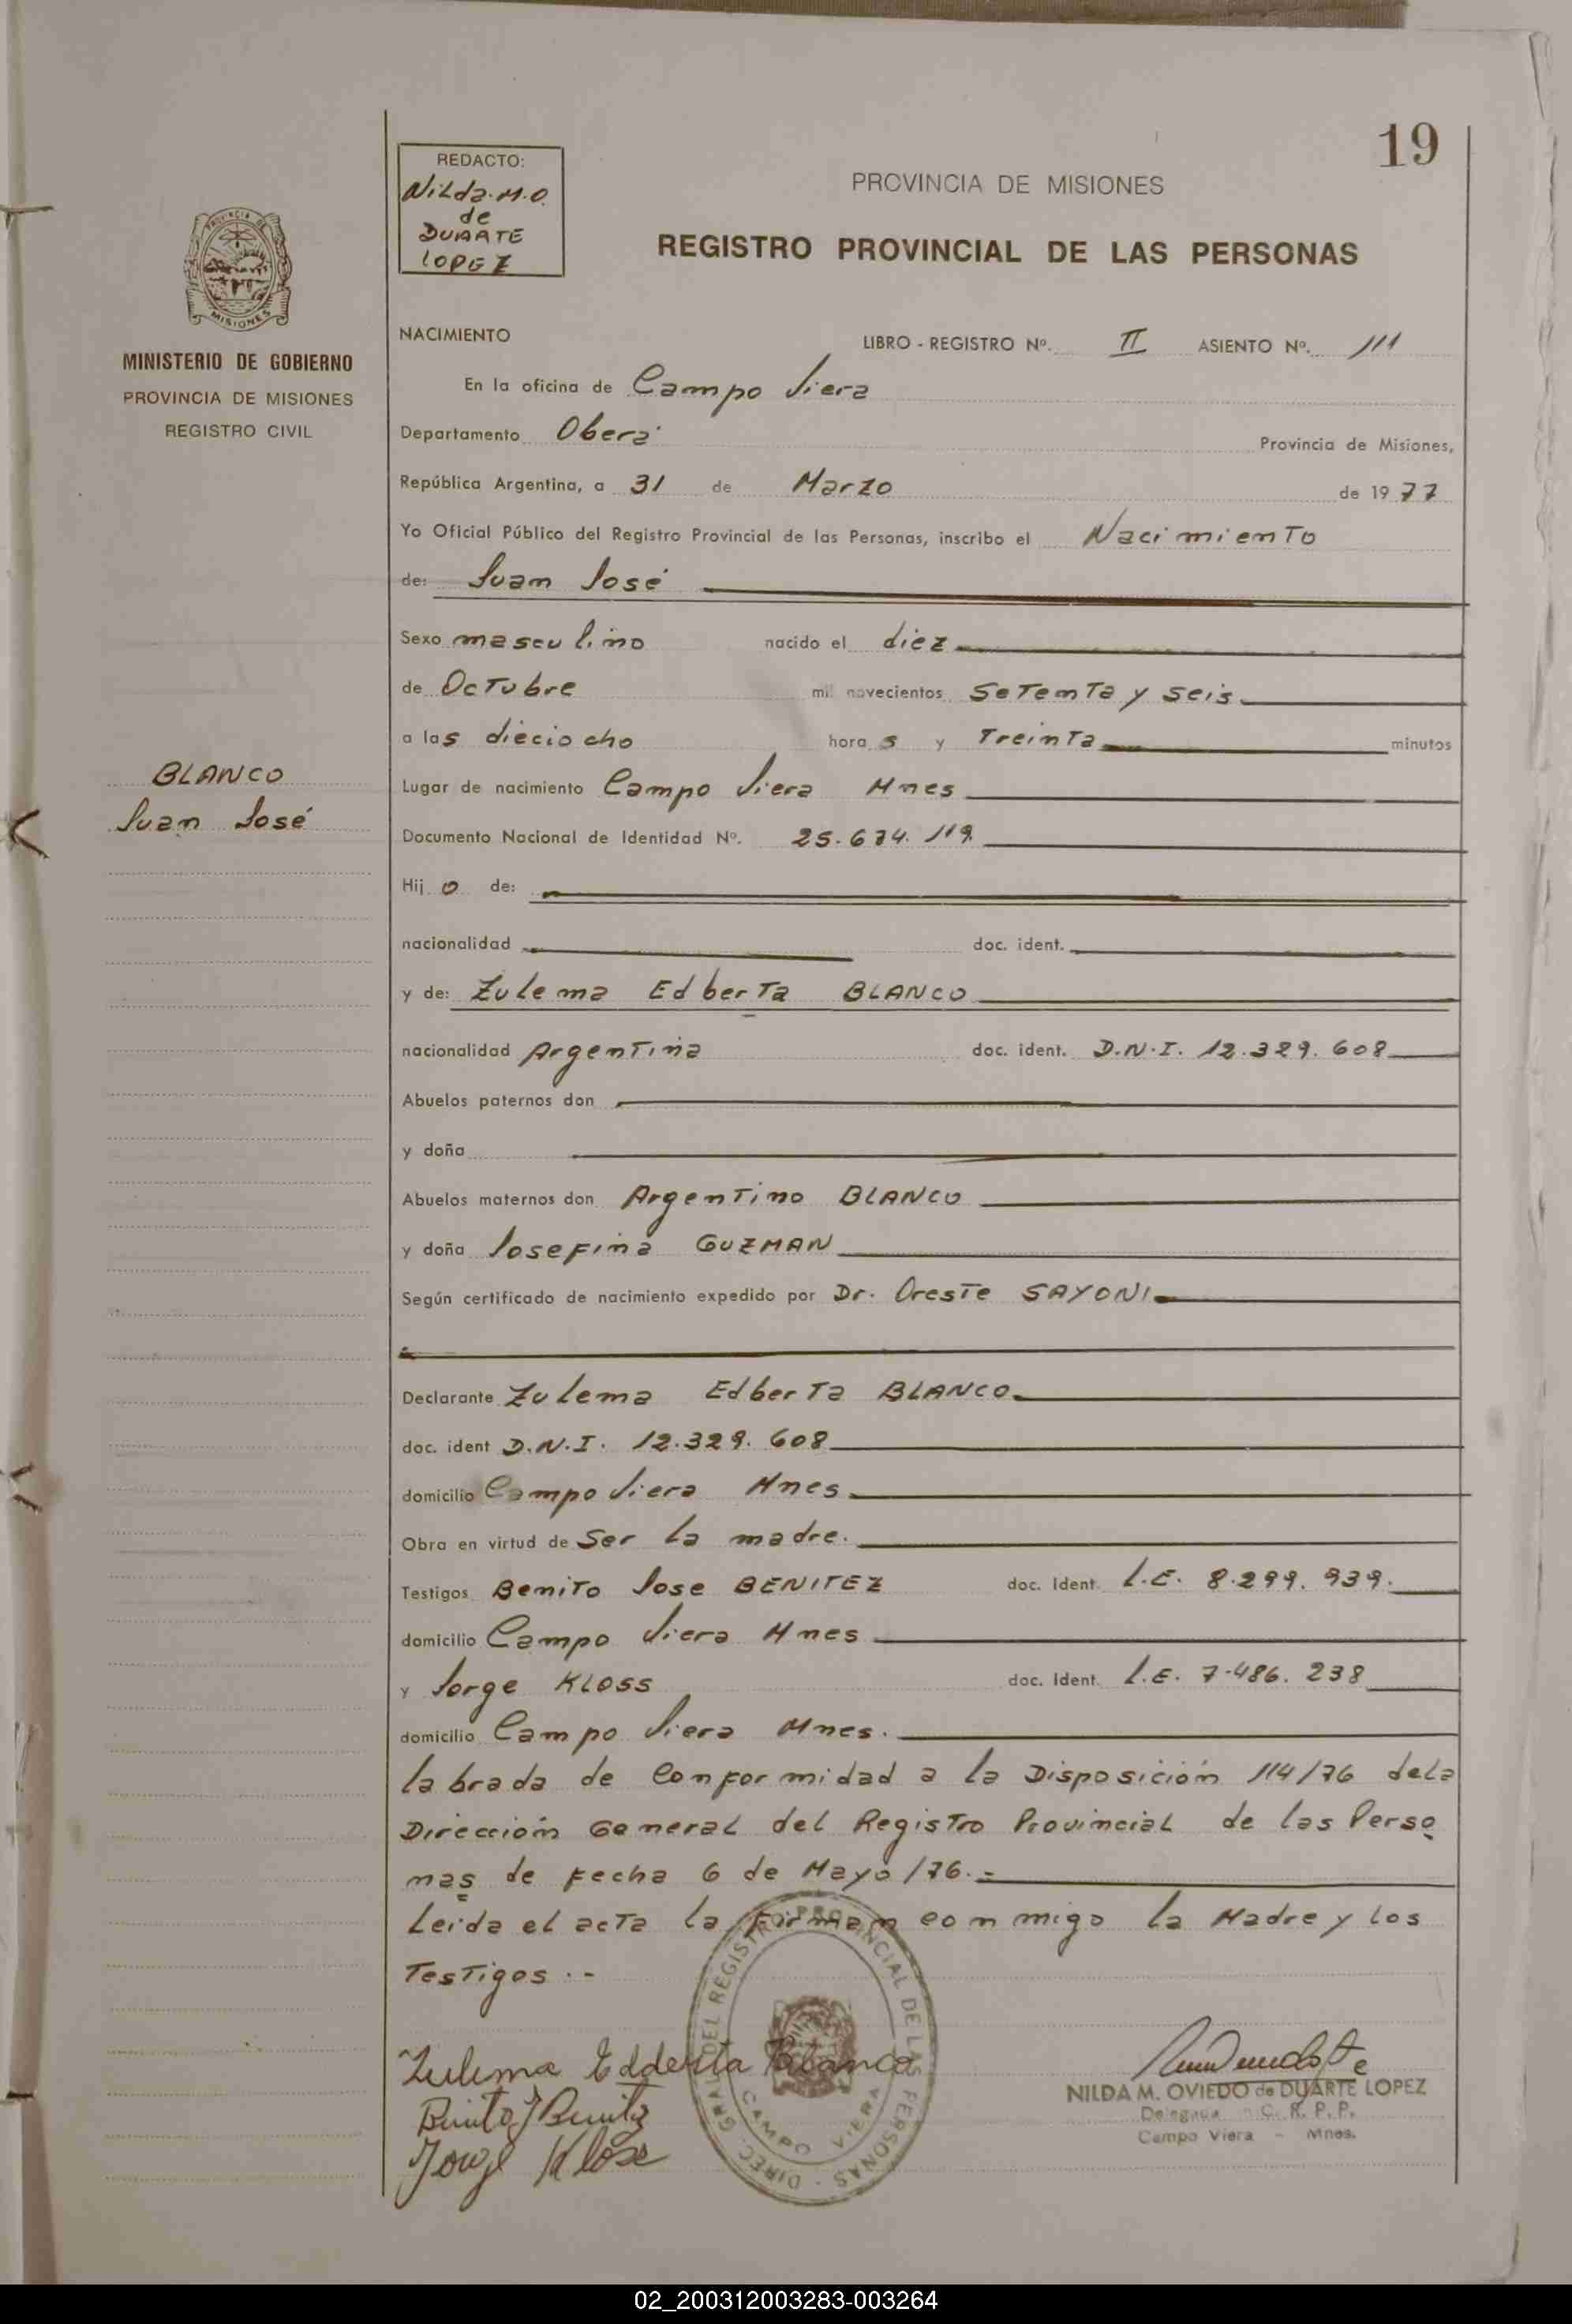 19
REDACTO:
Nilda.M.O.
de
DUARTE
LOPEZ
PROVINCIA DE MISIONES
REGISTRO PROVINCIAL DE LAS PERSONAS
PROVINCIA DE
MISIONES
MINISTERIO DE GOBIERNO
PROVINCIA DE MISIONES
REGISTRO CIVIL
NACIMIENTO LIBRO - REGISTRO Nº. II ASIENTO Nº. 111
En la oficina de Campo Viera
Departamento Oberá Provincia de Misiones,
República Argentina, a 31 de Marzo de 1977
Yo Oficial Público del Registro Provincial de las Personas, inscribo el Nacimiento
de: Juan José
Sexo masculino nacido el diez
de Octubre mil novecientos setenta y seis
a las dieciocho horas y Treinta minutos
BLANCO
Juan José
Lugar de nacimiento Campo Viera Mnes
Documento Nacional de Identidad Nº. 25.674.119
Hijo de:
nacionalidad doc. ident.
y de: Zulema Edberta BLANCO
nacionalidad Argentina doc. ident. D.N.I. 12.329.608
Abuelos paternos don
y doña
Abuelos maternos don Argentino BLANCO
y doña Josefina GUZMAN
Según certificado de nacimiento expedido por Dr. Oreste SAYONI
Declarante Zulema Edberta BLANCO
doc. ident D.N.I. 12.329.608
domicilio Campo Viera Mnes
Obra en virtud de Ser la madre.
Testigos Benito Jose BENITEZ doc. Ident. L.E. 8.299.939.
domicilio Campo Viera Mnes
y Jorge KLOSS doc. Ident. L.E. 7.486.238
domicilio Campo Viera Mnes.
labrada de Conformidad a la Disposición 114/76 dela
Dirección General del Registro Provincial de las Perso
nas de Fecha 6 de Mayo/76.-
Leida el acta la Firman conmigo la Madre y los
Testigos.-
DIREC. GRAL. DEL REGISTRO PROVINCIAL DE LAS PERSONAS -
CAMPO VIERA
Zulema Edberta Blanco
Benito J Benitez
Jorge Kloss
NILDA M. OVIEDO de DUARTE LOPEZ
Delegada C. R. P. P.
Campo Viera - Mnes.
02_200312003283-003264